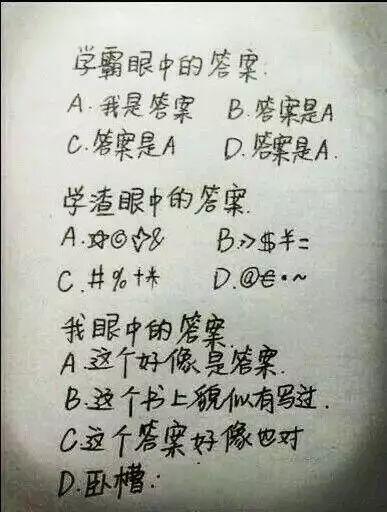 学霸眼中的答案:
A.我是答案 B.答案是A
C.答案是A D.答案是A.
学渣眼中的答案.
A.☆@☆& B.>>$¥=
C.#%+* D.@€·~
我眼中的答案
A.这个好像是答案.
B.这个书上貌似有写过.
C.这个答案好像也对
D.卧槽: